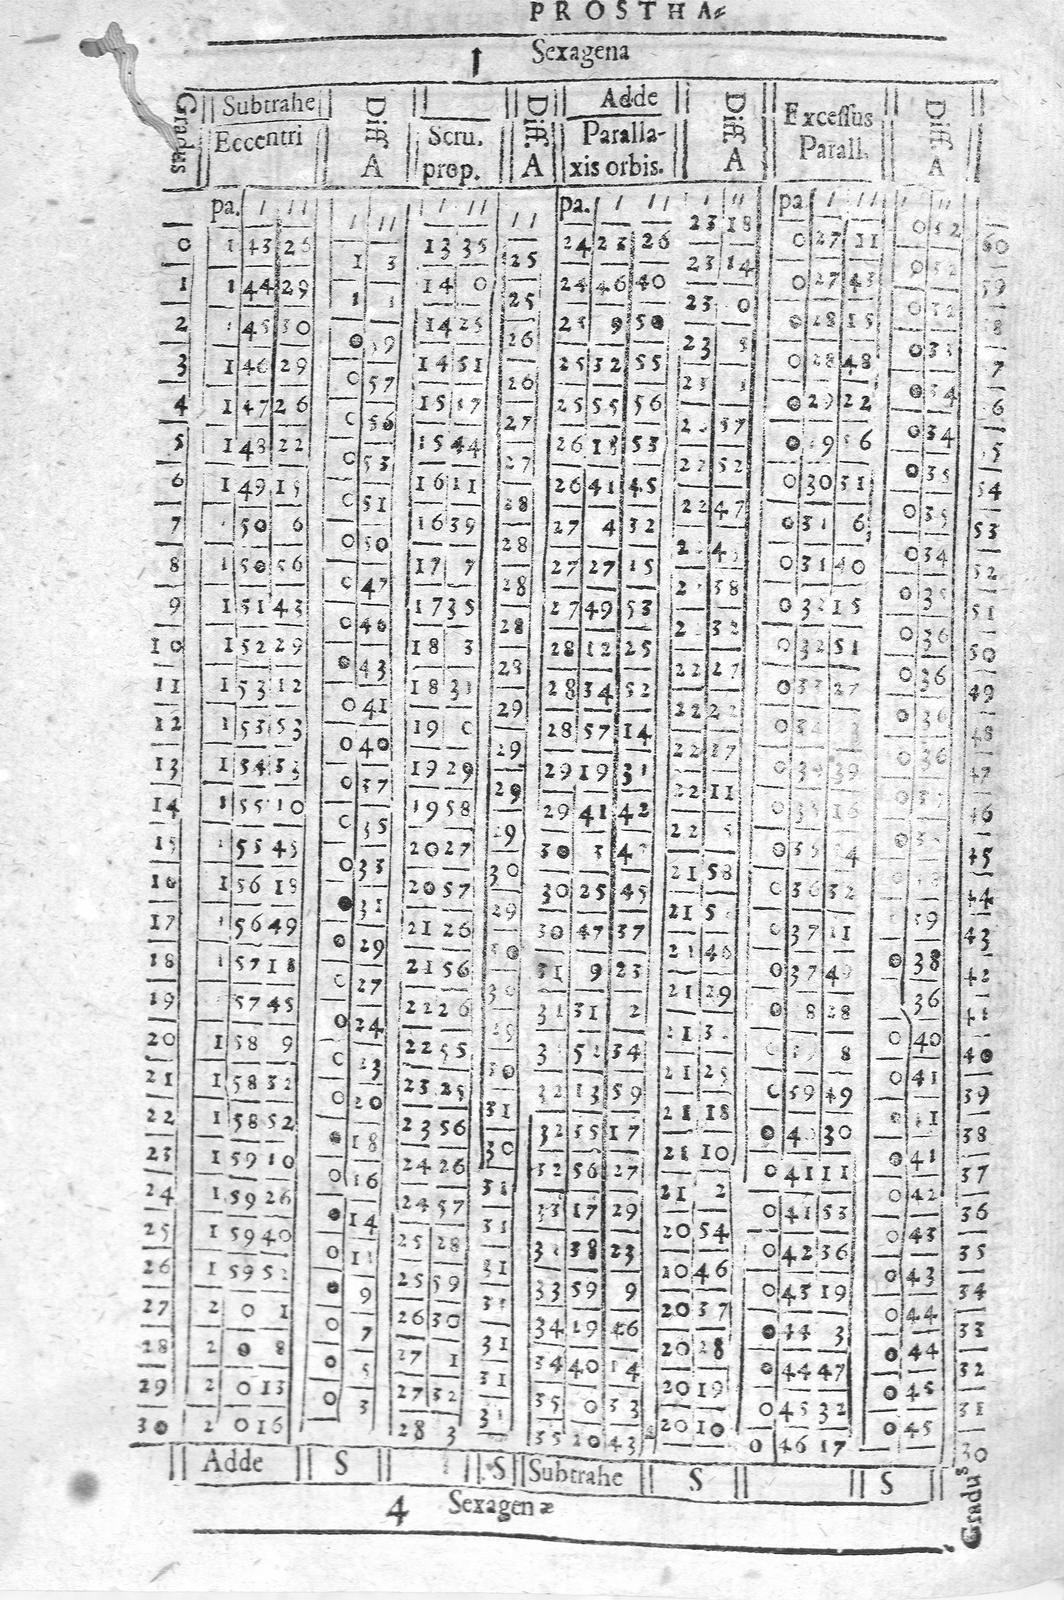 PROSTHA=
1 Sexagena
Gradus | Subtrahe Eccentri | Diff. A | Scru. prop. | Diff. A | Adde Paralla-xis orbis. | Diff. A | Excessus Parall. | Diff. A
pa. ' '' | ' '' | ' '' | '' | pa. ' '' | ' '' | pa ' '' | ' ''
23 18 | 0 52
0 | 1 43 26 | 13 35 | 24 23 26 | 0 27 11 | 60
1 3 | 25 | 23 14 | 0 32
1 | 1 44 29 | 14 0 | 24 46 40 | 0 27 43 | 59
1 1 | 25 | 23 0 | 0 32
2 | 1 45 30 | 14 25 | 25 9 50 | 0 28 15 | 8
0 59 | 26 | 23 5 | 0 33
3 | 1 46 29 | 14 51 | 25 32 55 | 0 28 48 | 7
0 57 | 26 | 23 1 | 0 34
4 | 1 47 26 | 15 17 | 25 55 56 | 0 29 22 | 6
0 56 | 27 | 57 | 0 34
5 | 1 48 22 | 15 44 | 26 18 53 | 0 29 56 | 5
0 53 | 27 | 22 52 | 0 35
6 | 1 49 15 | 16 11 | 26 41 45 | 0 30 31 | 54
0 51 | 28 | 22 47 | 0 35
7 | 50 6 | 16 39 | 27 4 32 | 0 31 6 | 53
0 50 | 28 | 0 34
8 | 1 50 56 | 17 7 | 27 27 15 | 0 31 40 | 52
0 47 | 28 | 38 | 0 35
9 | 1 51 43 | 17 35 | 27 49 53 | 0 32 15 | 51
0 46 | 28 | 32 | 0 36
10 | 1 52 29 | 18 3 | 28 12 25 | 0 32 51 | 50
0 43 | 28 | 22 27 | 0 36
11 | 1 53 12 | 18 31 | 28 34 52 | 0 33 27 | 49
0 41 | 29 | 22 22 | 0 36
12 | 1 53 53 | 19 0 | 28 57 14 | 0 34 3 | 48
0 40 | 29 | 22 17 | 0 36
13 | 1 54 33 | 19 29 | 29 19 31 | 0 34 39 | 47
0 37 | 29 | 22 11 | 0 37
14 | 1 55 10 | 19 58 | 29 41 42 | 0 35 16 | 46
0 35 | 29 | 22 5 | 0
15 | 1 55 45 | 20 27 | 30 3 47 | 0 35 54 | 45
0 33 | 30 | 21 58
16 | 1 56 18 | 20 57 | 30 25 45 | 0 36 32 | 44
0 31 | 29 | 21 5 | 39
17 | 1 56 49 | 21 26 | 30 47 37 | 0 37 11 | 43
0 29 | 30 | 21 46 | 0 38
18 | 1 57 18 | 21 56 | 31 9 23 | 0 37 49 | 42
0 27 | 30 | 21 29 | 36
19 | 57 45 | 22 26 | 31 31 2 | 0 8 28 | 41
0 24 | 29 | 21 3 | 0 40
20 | 1 58 9 | 22 55 | 3 52 34 | 8 | 40
0 23 | 30 | 21 25 | 0 41
21 | 1 58 32 | 23 25 | 32 13 59 | 0 59 49 | 39
0 20 | 31 | 21 18 | 41
22 | 1 58 52 | 23 56 | 32 35 17 | 0 40 30 | 38
0 18 | 30 | 21 10 | 0 41
23 | 1 59 10 | 24 26 | 32 56 27 | 0 41 11 | 37
0 16 | 31 | 21 2 | 0 42
24 | 1 59 26 | 24 57 | 33 17 29 | 0 41 53 | 36
0 14 | 31 | 20 54 | 0 43
25 | 1 59 40 | 25 28 | 33 38 23 | 0 42 36 | 35
0 11 | 31 | 20 46 | 0 43
26 | 1 59 52 | 25 59 | 33 59 9 | 0 43 19 | 34
0 9 | 31 | 20 37 | 0 44
27 | 2 0 1 | 26 30 | 34 19 46 | 0 44 3 | 33
0 7 | 31 | 20 28 | 0 44
28 | 2 0 8 | 27 1 | 34 40 14 | 0 44 47 | 32
0 5 | 31 | 20 19 | 0 45
29 | 2 0 13 | 27 32 | 35 0 33 | 0 45 32 | 31
0 3 | 31 | 20 10 | 0 45
30 | 2 0 16 | 28 3 | 35 20 43 | 0 46 17 | 30
Adde | S | S | Subtrahe | S | S | Gradus
4 Sexagenæ